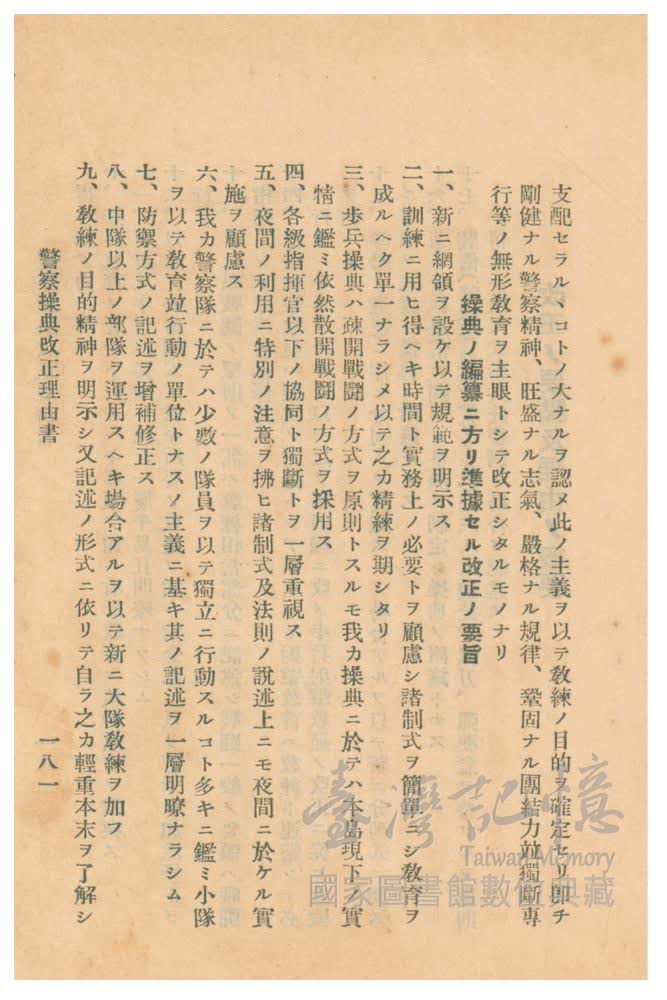 支配セラルヽコトノ大ナルヲ認メ此ノ主義ヲ以テ教練ノ目的ヲ確定セリ卽チ
剛健ナル警察精神、旺盛ナル志氣、嚴格ナル規律、鞏固ナル團結力竝獨斷專
行等ノ無形教育ヲ主眼トシテ改正シタルモノナリ
操典ノ編纂ニ方リ準據セル改正ノ要旨
一、新ニ綱領ヲ設ケ以テ規範ヲ明示ス
二、訓練ニ用ヒ得ヘキ時間ト實務上ノ必要トヲ顧慮シ諸制式ヲ簡單ニシ教育ヲ
成ルヘク單一ナラシメ以テ之カ精練ヲ期シタリ
三、歩兵操典ハ疎開戰鬪ノ方式ヲ原則トスルモ我カ操典ニ於テハ本島現下ノ實
情ニ鑑ミ依然散開戰鬪ノ方式ヲ採用ス
四、各級指揮官以下ノ協同ト獨斷トヲ一層重視ス
五、夜間ノ利用ニ特別ノ注意ヲ拂ヒ諸制式及法則ノ說述上ニモ夜間ニ於ケル實
施ヲ顧慮ス
六、我カ警察隊ニ於テハ少數ノ隊員ヲ以テ獨立ニ行動スルコト多キニ鑑ミ小隊
ヲ以テ教育竝行動ノ單位トナスノ主義ニ基キ其ノ記述ヲ一層明瞭ナラシム
七、防禦方式ノ記述ヲ增補修正ス
八、中隊以上ノ部隊ヲ運用スヘキ場合アルヲ以テ新ニ大隊教練ヲ加フ
九、教練ノ目的精神ヲ明示シ又記述ノ形式ニ依リテ自ラ之カ輕重本末ヲ了解シ
警察操典改正理由書
一八一
臺灣記憶
Taiwan Memory
國家圖書館數位典藏